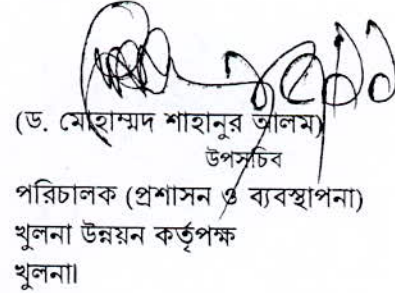 (ড. মোহাম্মদ শাহানুর আলম)
উপসচিব
পরিচালক (প্রশাসন ও ব্যবস্থাপনা)
খুলনা উন্নয়ন কর্তৃপক্ষ
খুলনা।